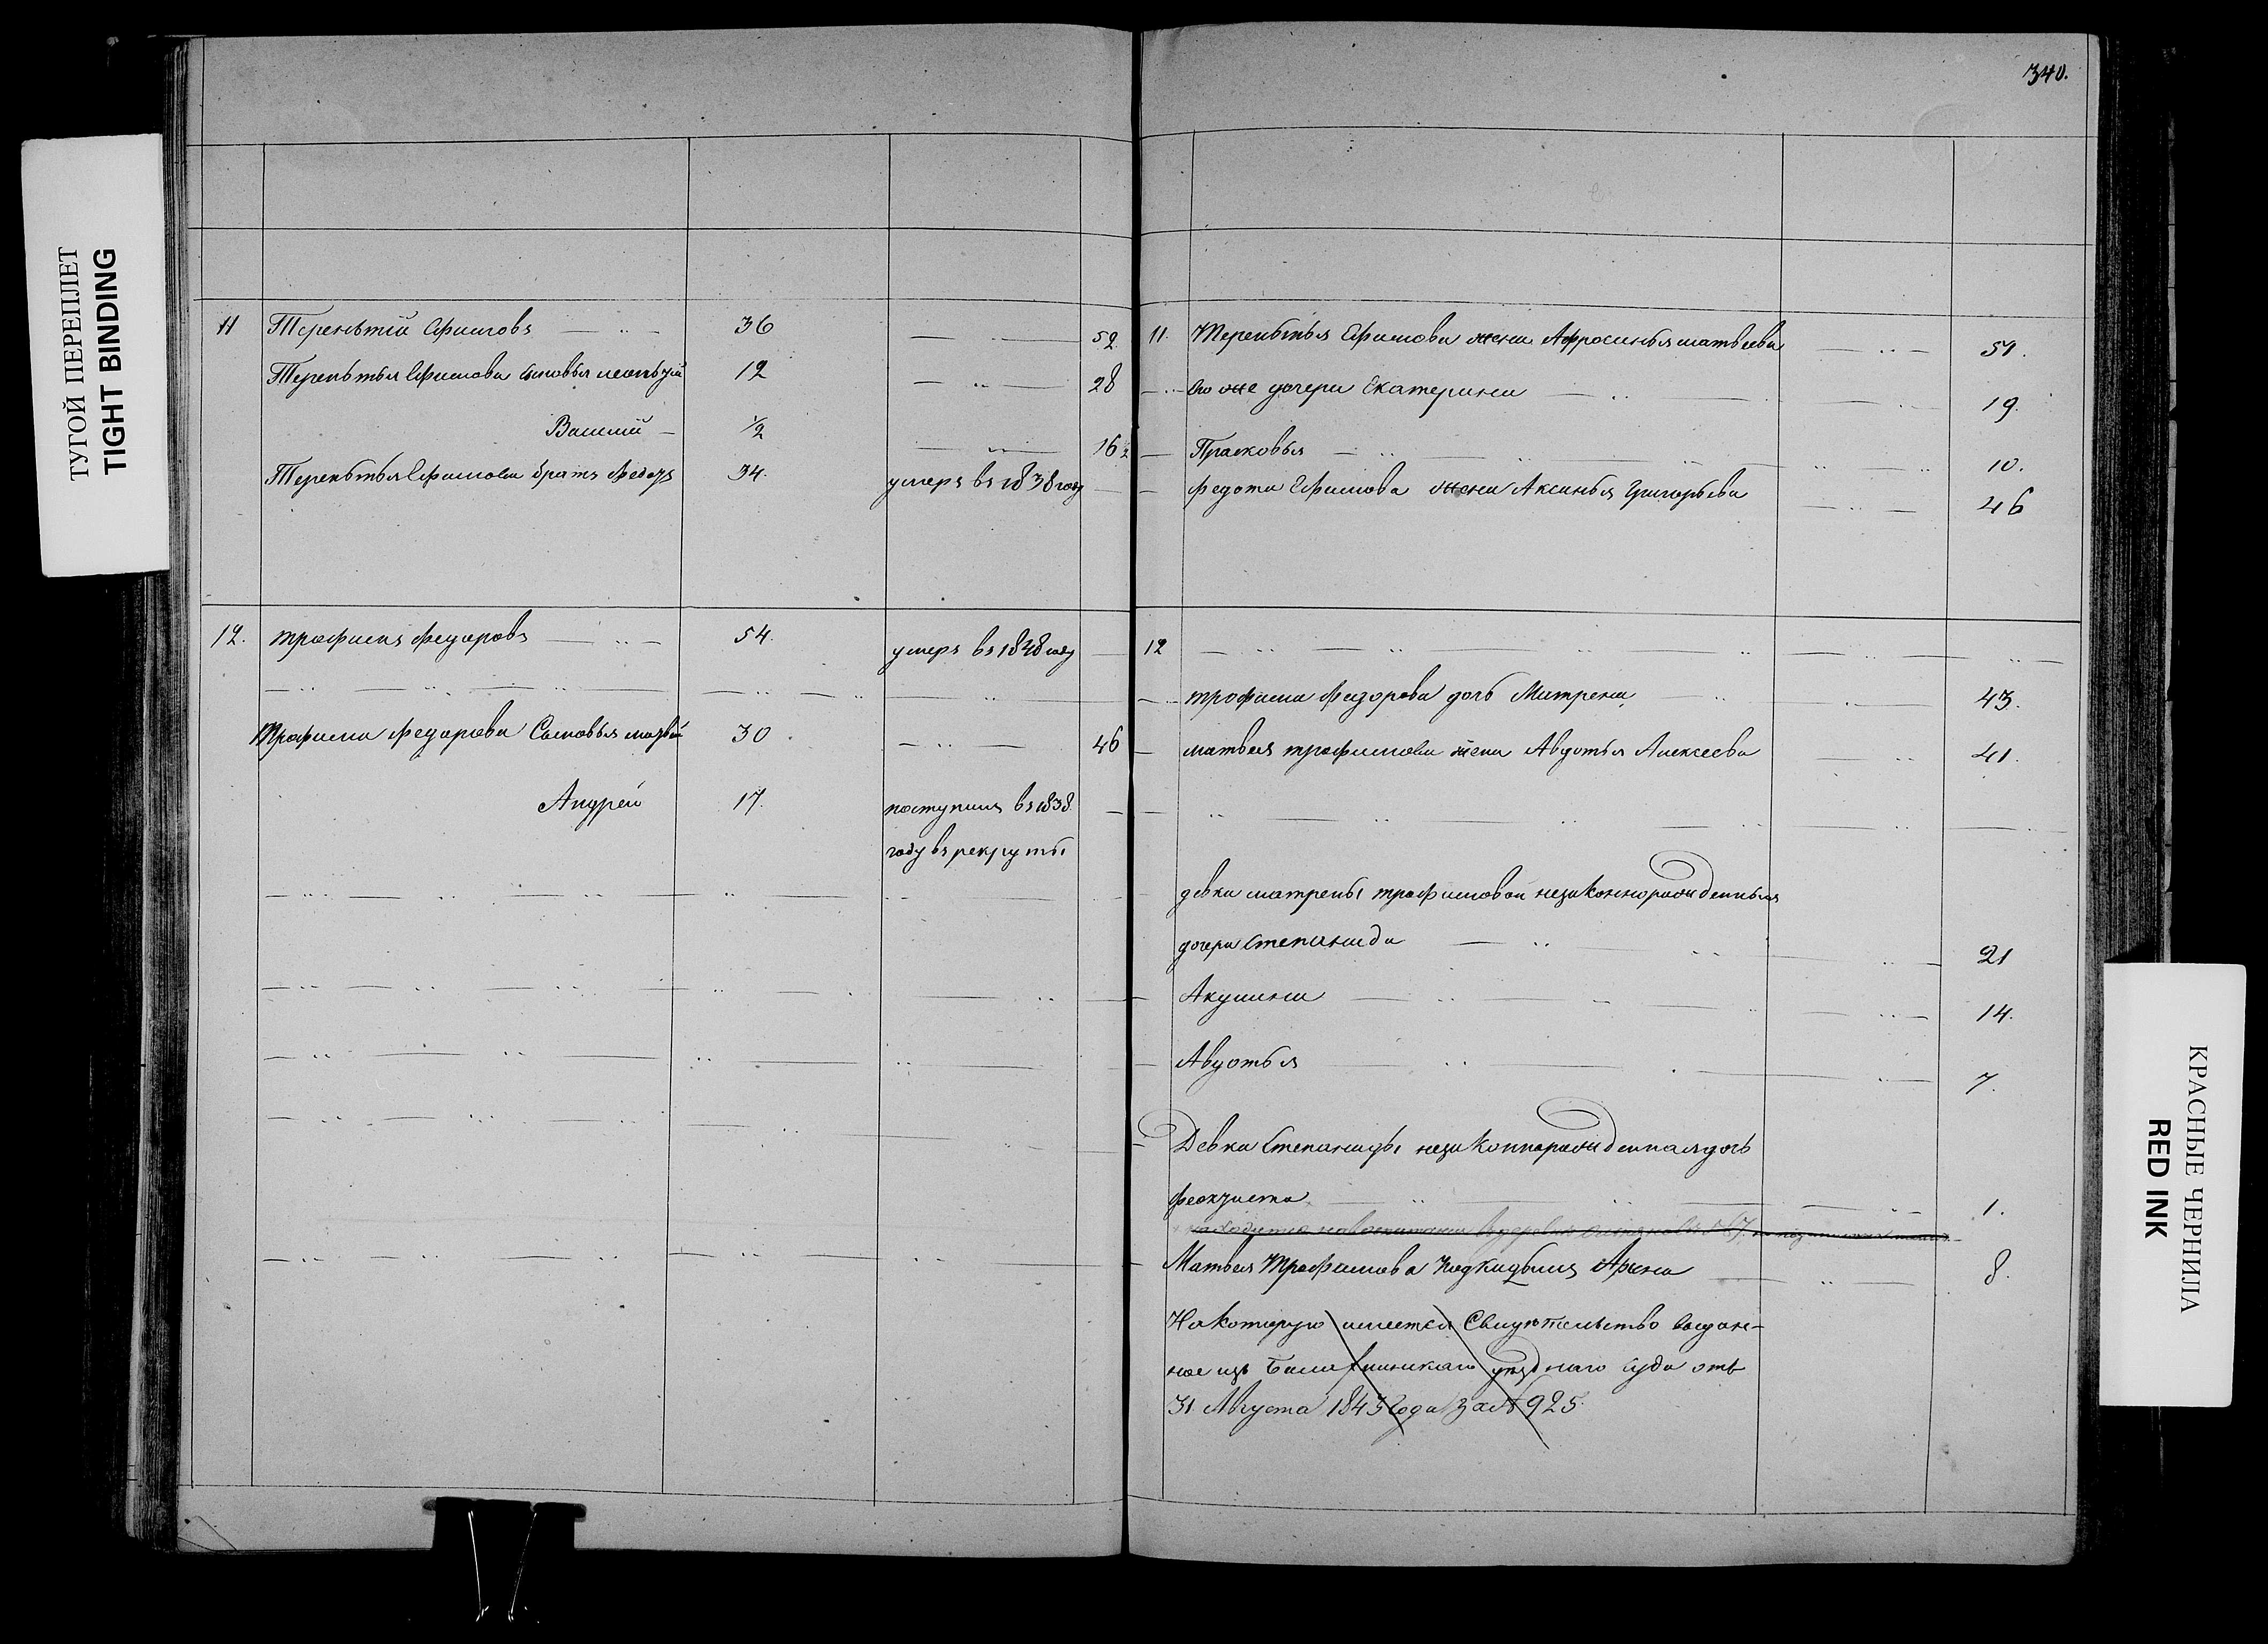 340.
ТУГОЙ ПЕРЕПЛЕТ
TIGHT BINDING
11 Терентій Ефимовъ 36 52
Терентья Ефимова сыновья Леонтій 12 28
Василій ½ 16½
Терентья Ефимова братъ Федотъ 34. умеръ въ 1838 году
12. Трофимъ Федоровъ 54. умеръ въ 1848 году
Трофима Федорова Сыновья Матвѣй 30 46
Андрей 17. поступилъ въ 1838
году въ рекруты
11. Терентья Ефимова жена Афросинья Матвеева 51.
Его же дочери Екатерина 19.
Прасковья 10.
Федота Ефимова жена Аксинья Григорьева 46
12
Трофима Федорова дочь Матрена 43.
Матвея Трофимова жена Авдотья Алексеева 41.
девки Матрены Трофимовой незаконнорожденныя
дочери Степанида 21
Акулина 14.
Авдотья 7.
Девки Степаниды незаконнорожденная дочь
Феоктиста 1.
находится на воспитании въ деревне
Матвея Трофимова Подкидышъ Арина 8.
На которую имеется Свидетельство выдан-
ное изъ уезднаго суда отъ
31 Августа 1843 года за № 925.
КРАСНЫЕ ЧЕРНИЛА
RED INK